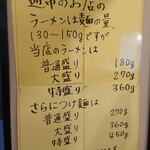 通常のお店の
ラーメンは麺の量
130〜150gですが
当店のラーメンは
普通盛り 180g
大盛り 270g
特盛り 360g
さらにつけ麺は
普通盛り 270g
大盛り 360g
特盛り 450g